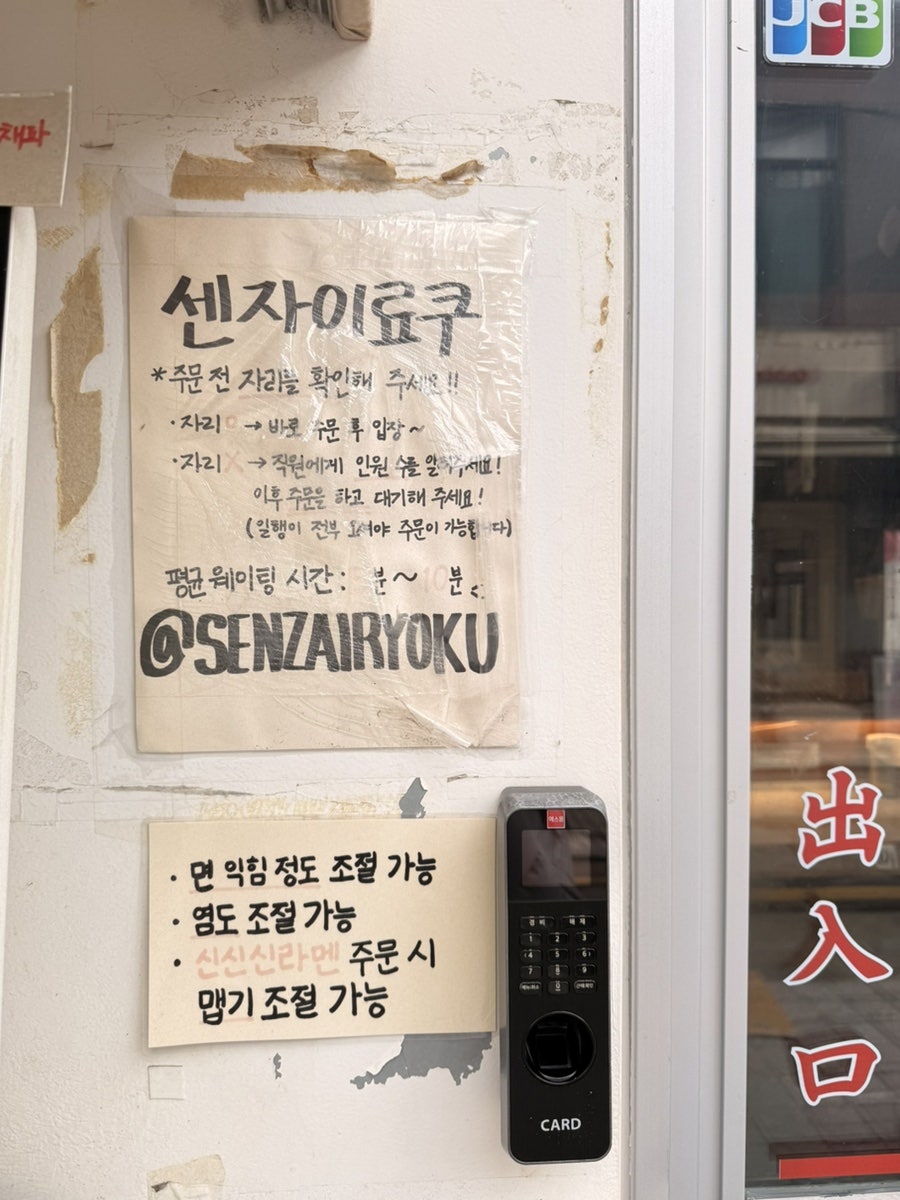 JCB
채파
센자이료쿠
*주문 전 자리를 확인해 주세요!!
·자리 O → 바로 주문 후 입장~
·자리 X → 직원에게 인원 수를 알려주세요!
이후 주문을 하고 대기해 주세요!
(일행이 전부 오셔야 주문이 가능합니다)
평균 웨이팅 시간: 분~10분
@SENZAIRYOKU
· 면 익힘 정도 조절 가능
· 염도 조절 가능
· 신신신라멘 주문 시
맵기 조절 가능
에스원
경비 해제
1 2 3
4 5 6
7 8 9
0
CARD
出入口